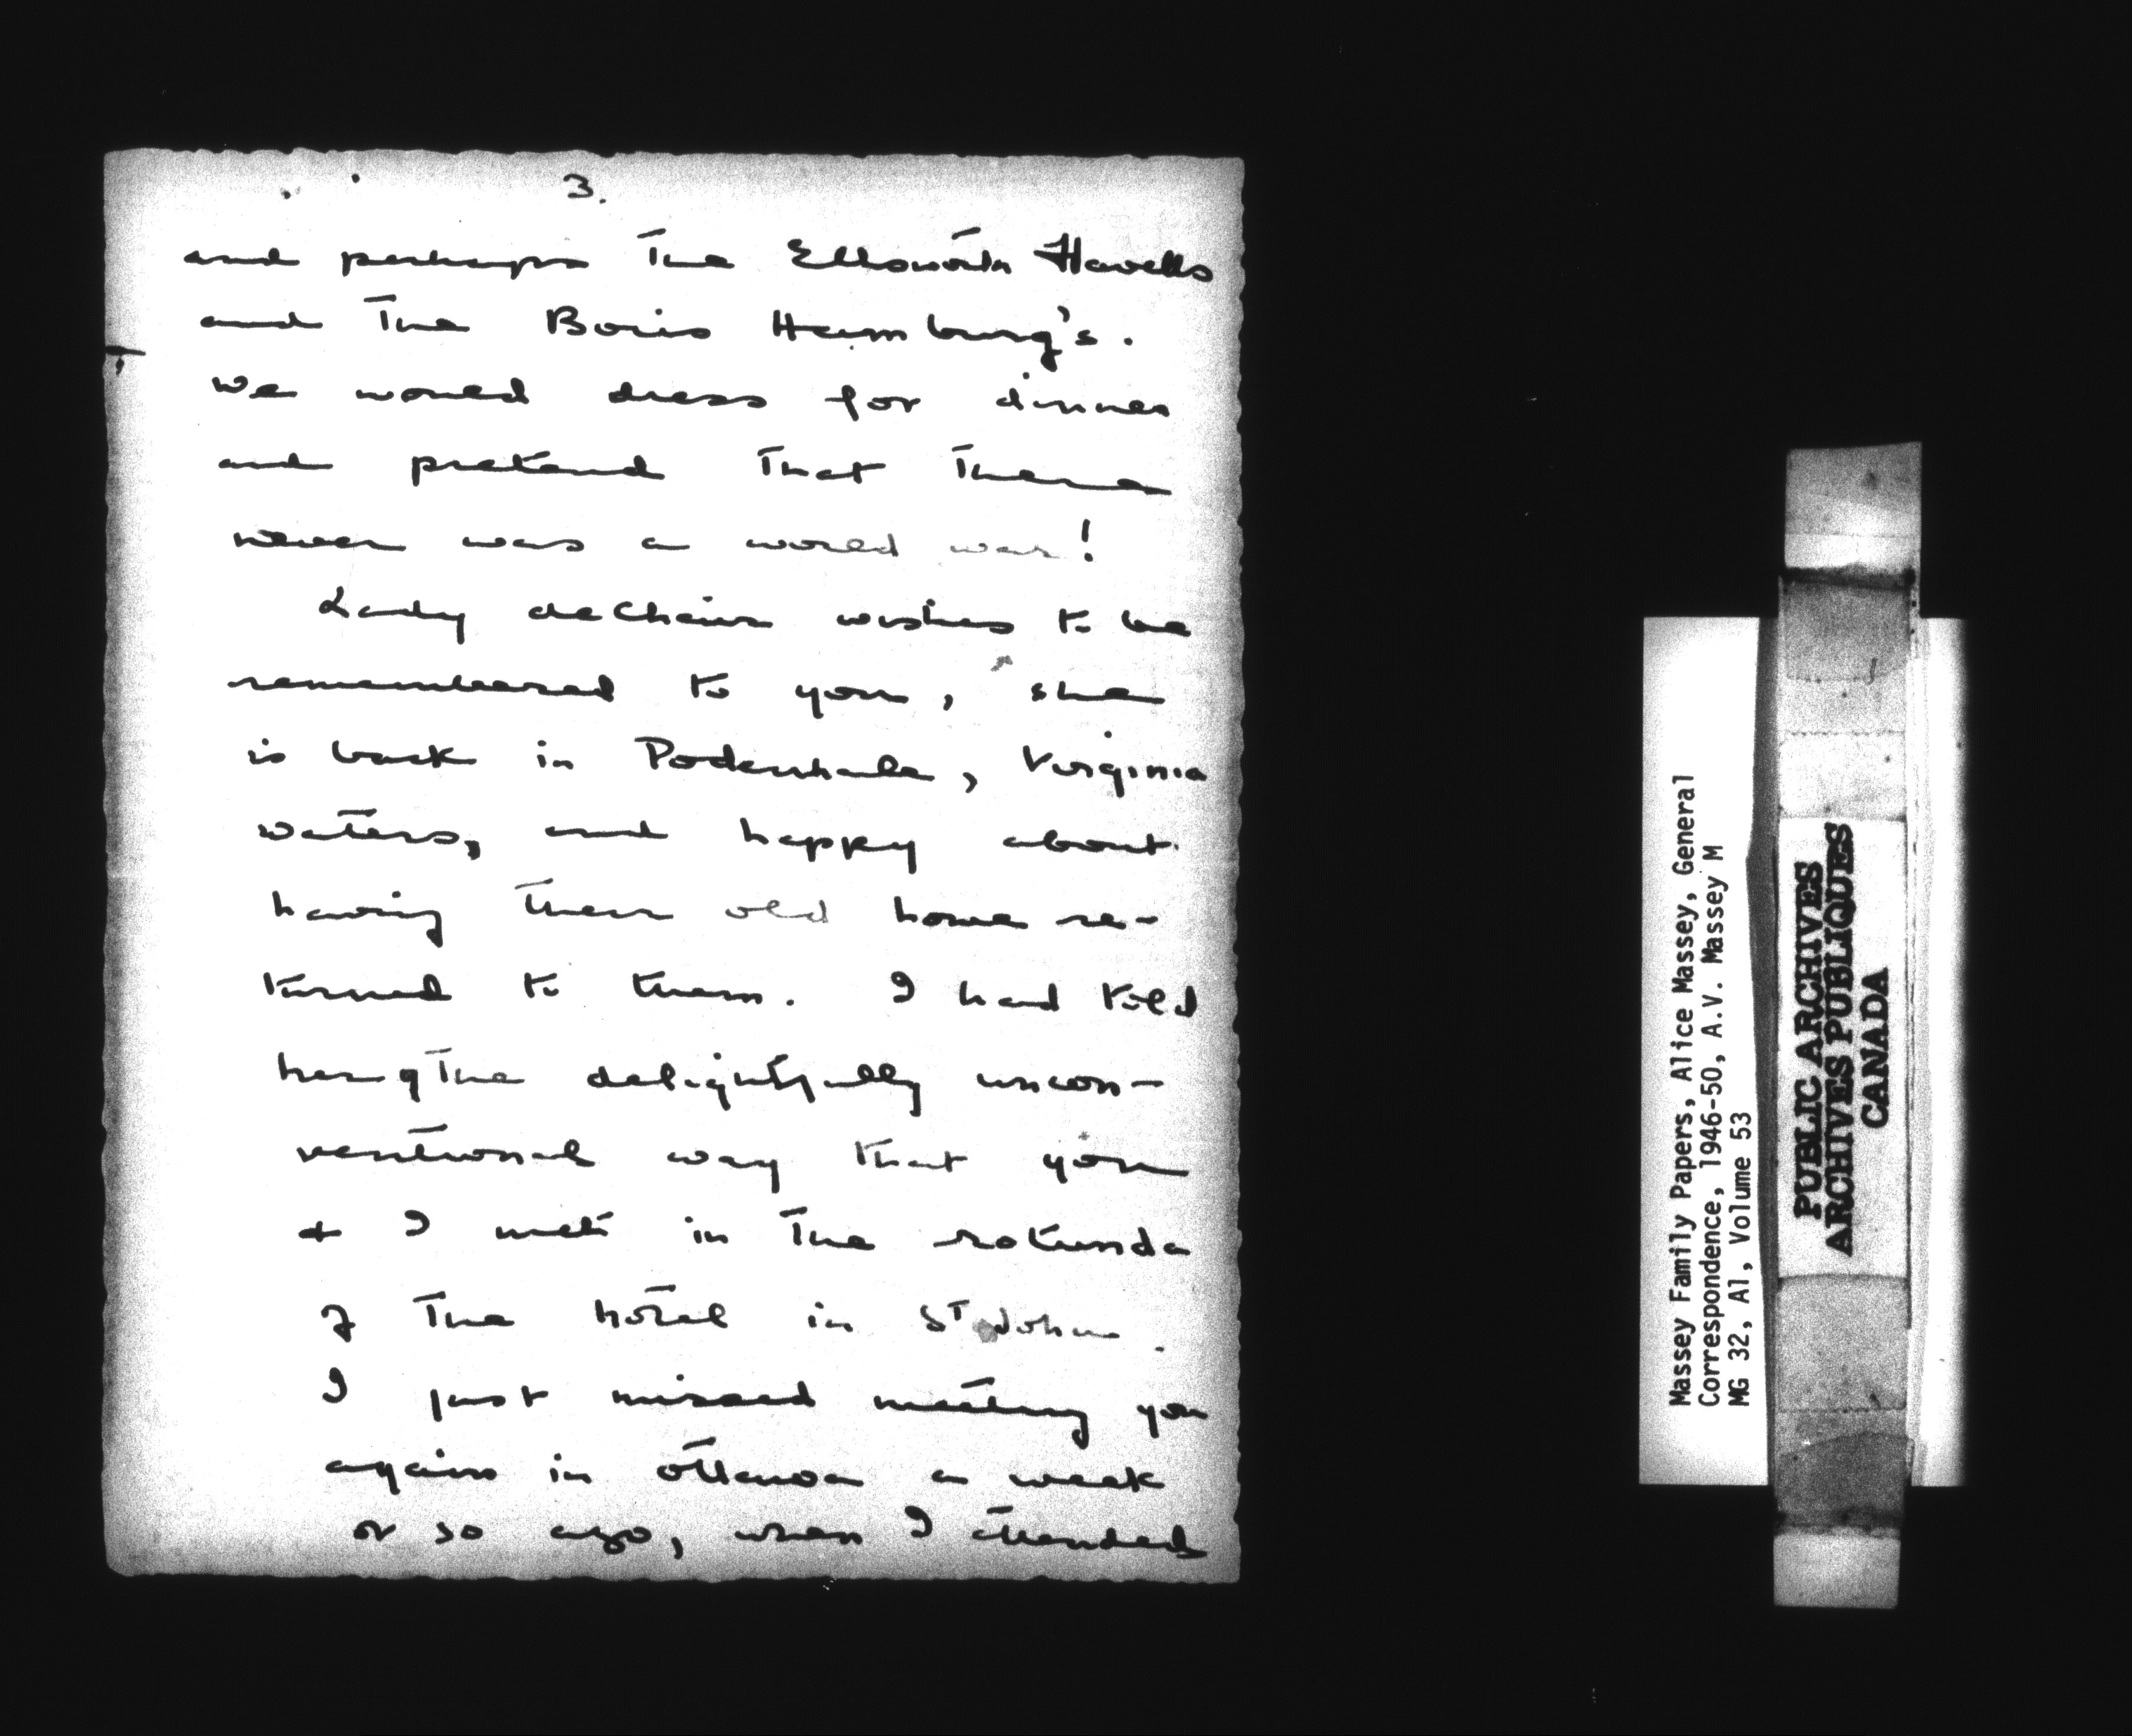 3.
and perhaps the Ellsworth Flavells
and the Boris Hambourg's.
we would dress for dinner
and pretend that there
never was a world war!
Lady deChair wishes to be
remembered to you, she
is back in Podenhale, Virginia
waters, and happy about
having their old home re-
turned to them. I had told
her of the delightfully uncon-
ventional way that you
+ I met in the rotunda
of the hotel in St John.
I just missed meeting you
again in Ottawa a week
or so ago, when I attended
Massey Family Papers, Alice Massey, General
Correspondence, 1946-50, A.V. Massey M
MG 32, A1, Volume 53
PUBLIC ARCHIVES
ARCHIVES PUBLIQUES
CANADA